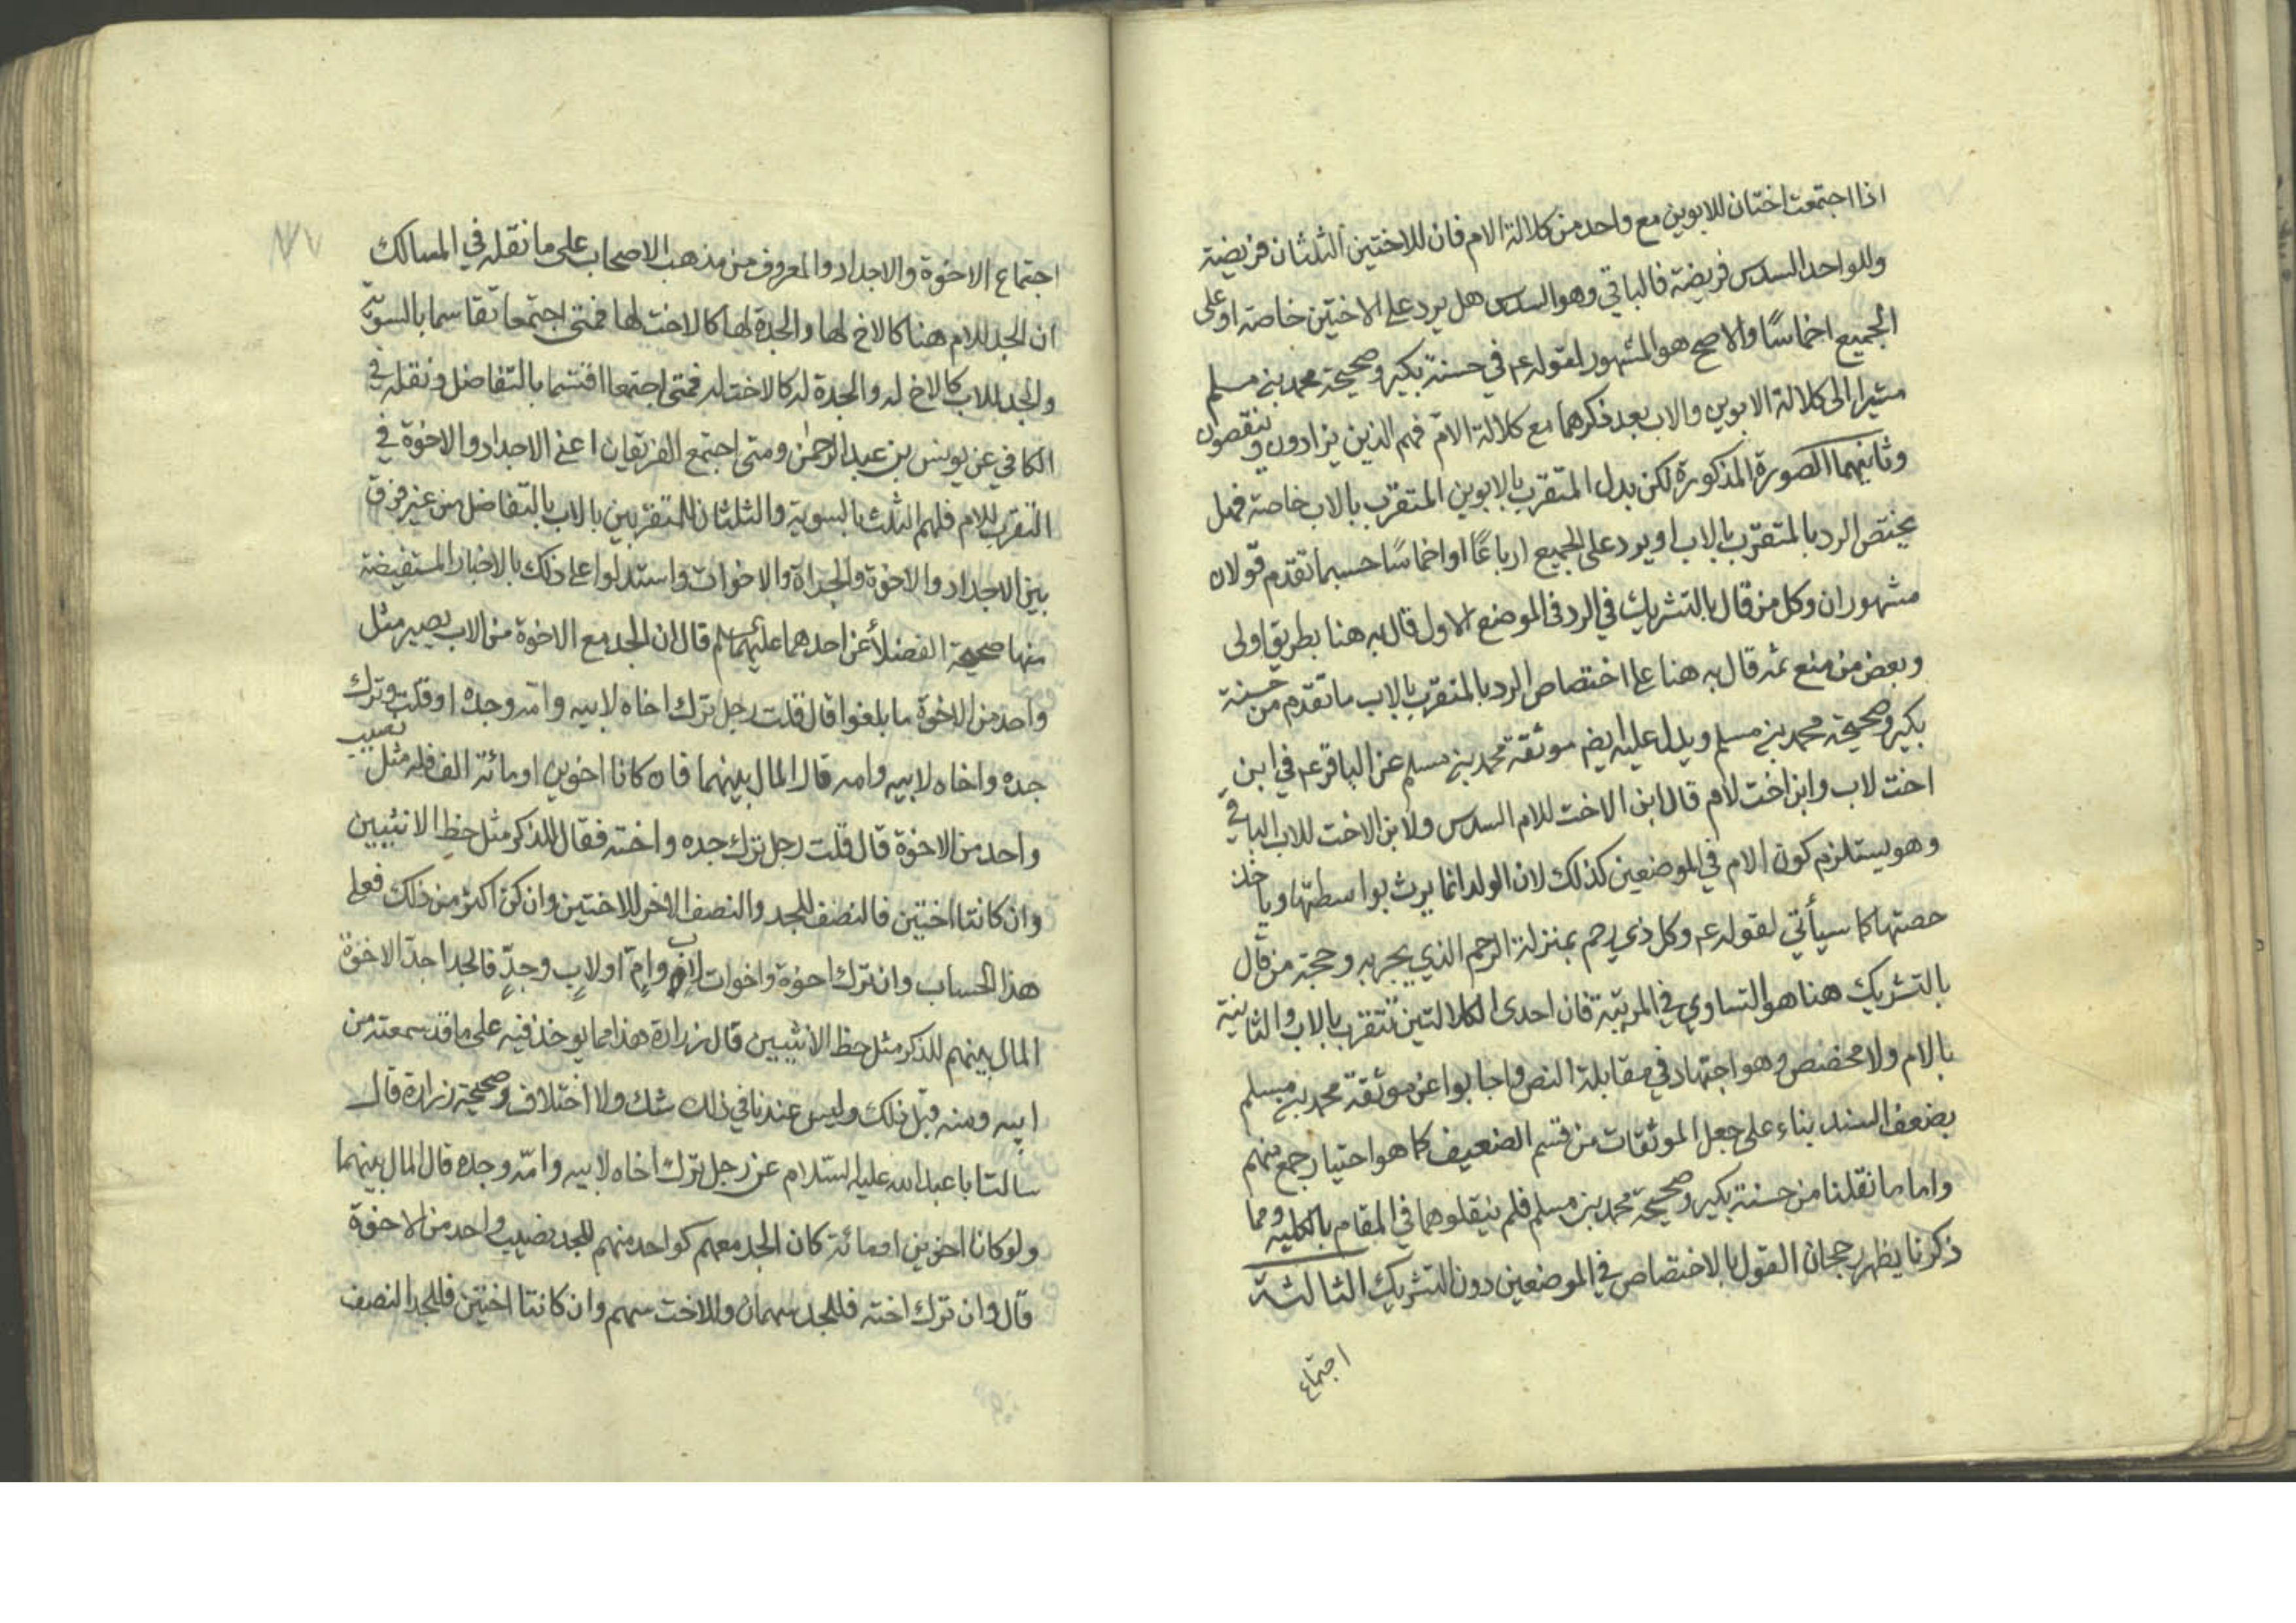 اذا اجتمعت اختان للابوين مع واحد من كلالة الام فان للاختين الثلثان فريضة
وللواحد السدس فريضة فالباقي وهو السدس هل يرد على الاختين خاصة او على
الجميع اخماسًا والاصح هو المشهور لقوله ع في حسنة بكير وصحيحة محمد بن مسلم
مشيرا الى كلالة الابوين والاب بعد ذكرهما مع كلالة الام فهم الذين يزادون وينقصون
وثانيهما الصورة المذكورة لكن بدل المتقرب بالابوين المتقرب بالاب خاصة فهل
يختص الرد بالمتقرب بالاب او يرد على الجميع ارباعًا او اخماسًا حسبما تقدم قولان
مشهوران وكل من قال بالتشريك في الرد في الموضع الاول قال به هنا بطريق اولى
وبعض من منع ثمه قال به هنا على اختصاص الرد بالمتقرب بالاب ما تقدم من حسنة
بكير وصحيحة محمد بن مسلم ويدل عليه ايضا موثقة محمد بن مسلم عن الباقر ع في ابن
اخت لاب وابن اخت لام قال لابن الاخت للام السدس ولابن الاخت للاب الباقي
وهو يستلزم كون الام في الموضعين كذلك لان الولد انما يرث بواسطتها وياخذ
حصتها كما سيأتي لقوله ع وكل ذي رحم بمنزلة الرحم الذي يجر به وحجة من قال
بالتشريك هنا هو التساوي في المرتبة فان احدى الكلالتين تتقرب بالاب والثانية
بالام ولا مخصص وهو اجتهاد في مقابلة النص واجابوا عن موثقة محمد بن مسلم
بضعف السند بناء على جعل الموثقات من قسم الضعيف كما هو اختيار جمع منهم
واما ما نقلنا من حسنة بكير وصحيحة محمد بن مسلم فلم ينقلوهما في المقام بالكلية ومما
ذكرنا يظهر رجحان القول بالاختصاص في الموضعين دون التشريك الثالثة
اجتماع
اجتماع الاخوة والاجداد والمعروف من مذهب الاصحاب على ما نقله في المسالك
ان الجد للام هنا كالاخ لها والجدة لها كالاخت لها فمتى اجتمعا تقاسما بالسوية
والجد للاب كالاخ له والجدة له كالاخت له فمتى اجتمعا اقتسما بالتفاضل ونقله في
الكافي عن يونس بن عبد الرحمن ومتى اجتمع الفريقان اعني الاجداد والاخوة في
التقرب للام فلهم الثلث بالسوية والثلثان للمتقربين بالاب بالتفاضل من غير فرق
بين الاجداد والاخوة والجدات والاخوات واستدلوا على ذلك بالاخبار المستفيضة
منها صحيحة الفضلاء عن احدهما عليهما السلم قال ان الجد مع الاخوة من الاب يصير مثل
واحد من الاخوة ما بلغوا قال قلت رجل ترك اخاه لابيه وامه وجده او قلت وترك
جده واخاه لابيه وامه قال المال بينهما فان كانا اخوين او مائة الف فله مثل نصيب
واحد من الاخوة قال قلت رجل ترك جده واخته فقال للذكر مثل حظ الانثيين
وان كانتا اختين فالنصف للجد والنصف الاخر للاختين وان كن اكثر من ذلك فعلى
هذا الحساب وان ترك اخوة واخوات لاب وام او لاب وجد فالجد احد الاخوة
المال بينهم للذكر مثل حظ الانثيين قال زرارة هذا مما يوخذ فيه على ما قد سمعته من
ابيه ومنه قبل ذلك وليس عندنا في ذلك شك ولا اختلاف وصحيحة زرارة قال
سالت ابا عبد الله عليه السلام عن رجل ترك اخاه لابيه وامه وجده قال المال بينهما
ولو كانا اخوين او مائة كان الجد معهم كواحد منهم للجد نصيب واحد من الاخوة
قال وان ترك اخته فللجد سهمان وللاخت سهم وان كانتا اختين فللجد النصف